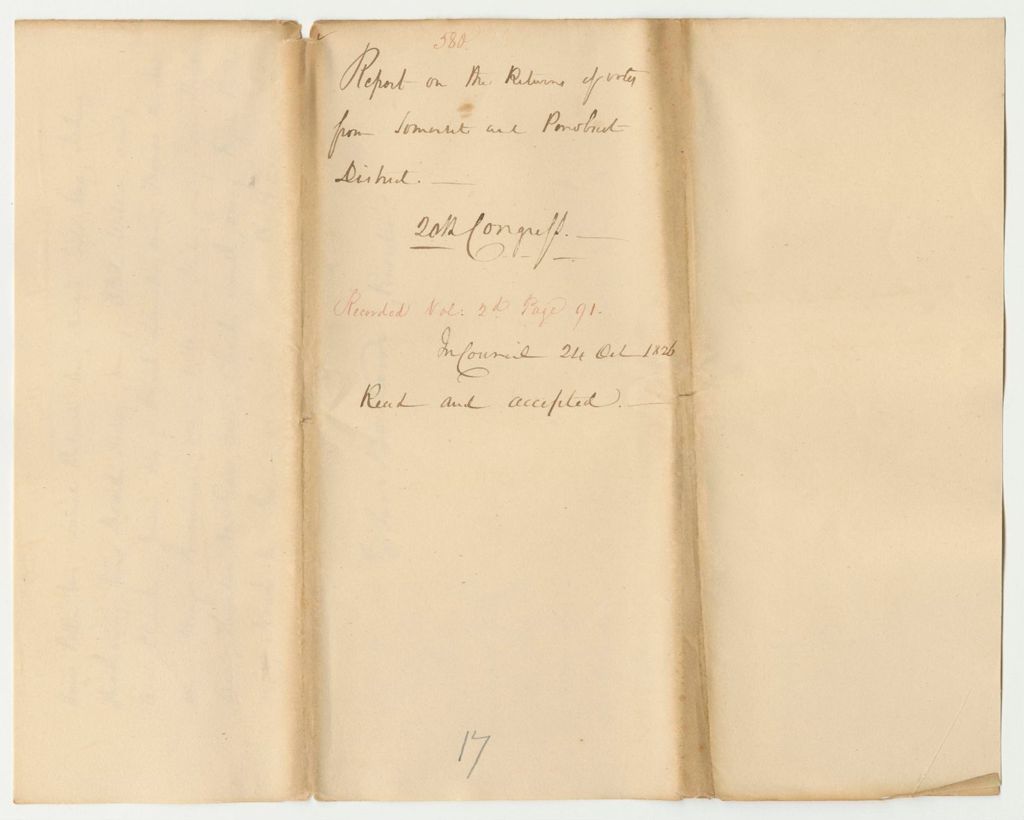 580.
Report on the Returns of votes
from Somerset and Penobscot
District. —
20th Congress. —
Recorded Vol: 2d Page 91.
In Council 24 Oct 1826
Read and accepted. —
17